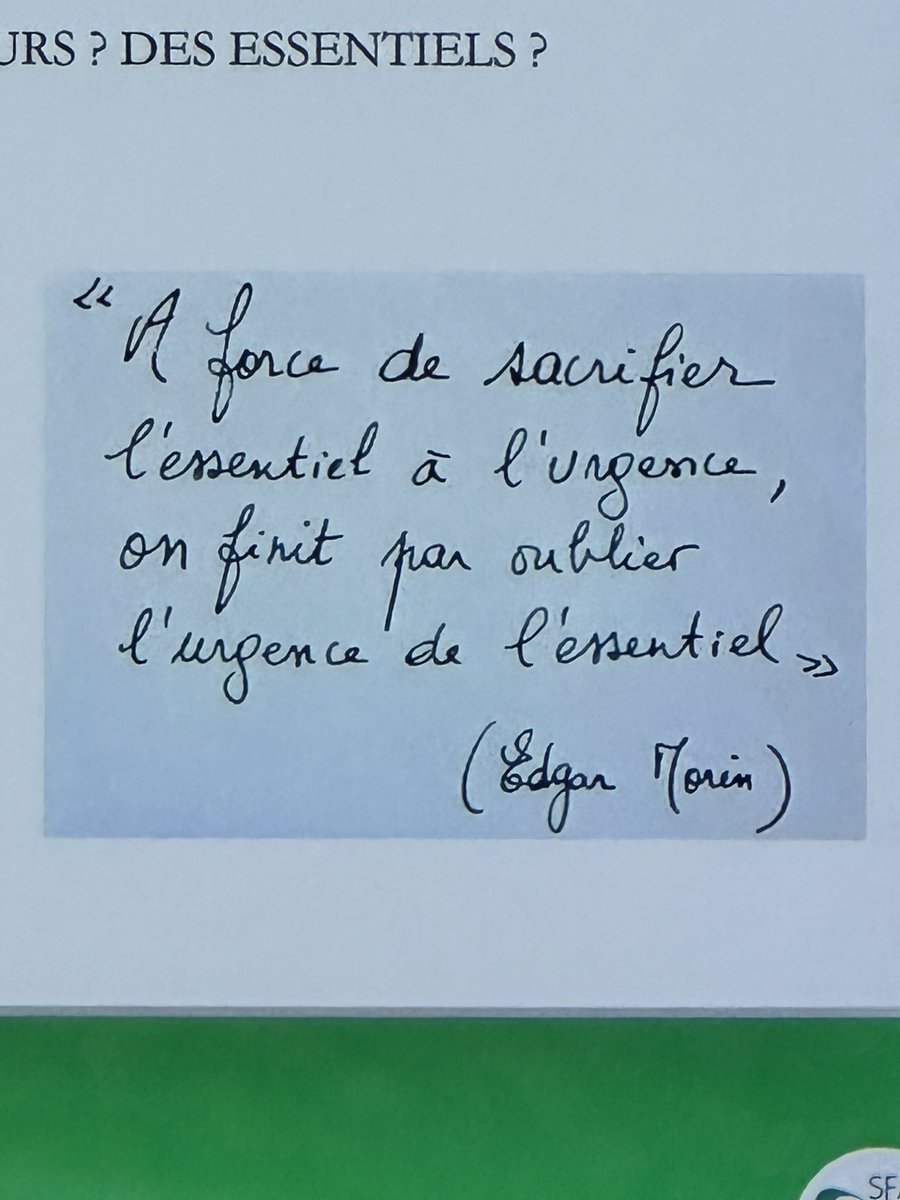 URS ? DES ESSENTIELS ?
“ A force de sacrifier
l'essentiel à l'urgence,
on finit par oublier
l'urgence de l'essentiel »
(Edgar Morin)